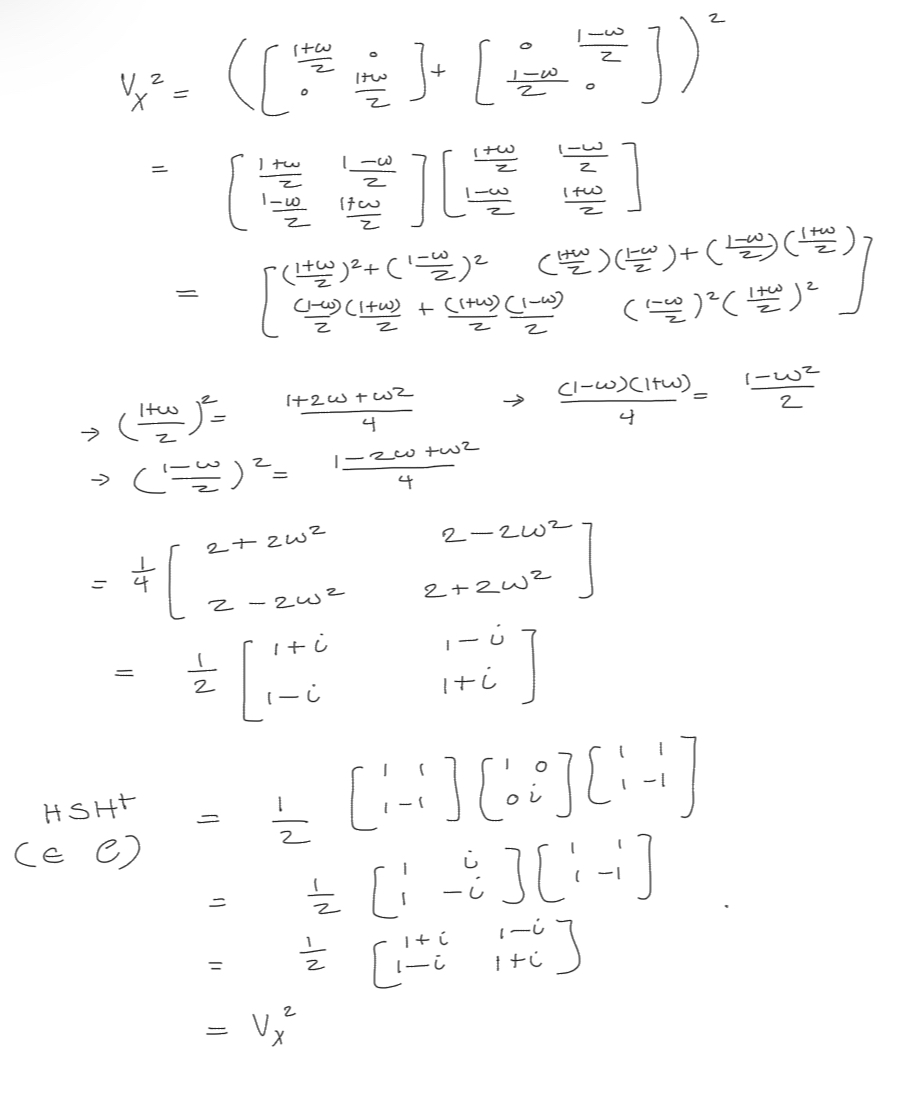 V_X² = ( [ (1+ω)/2 0 ; 0 (1+ω)/2 ] + [ 0 (1-ω)/2 ; (1-ω)/2 0 ] )²
= [ (1+ω)/2 (1-ω)/2 ; (1-ω)/2 (1+ω)/2 ] [ (1+ω)/2 (1-ω)/2 ; (1-ω)/2 (1+ω)/2 ]
= [ ((1+ω)/2)² + ((1-ω)/2)² ((1+ω)/2)((1-ω)/2) + ((1-ω)/2)((1+ω)/2) ; (1-ω)/2 (1+ω)/2 + (1+ω)/2 (1-ω)/2 ((1-ω)/2)² ((1+ω)/2)² ]
→ ((1+ω)/2)² = (1+2ω+ω²)/4 → (1-ω)(1+ω)/4 = (1-ω²)/2
→ ((1-ω)/2)² = (1-2ω+ω²)/4
= 1/4 [ 2+2ω² 2-2ω² ; 2-2ω² 2+2ω² ]
= 1/2 [ 1+i 1-i ; 1-i 1+i ]
HSH† = 1/2 [ 1 1 ; 1 -1 ] [ 1 0 ; 0 i ] [ 1 1 ; 1 -1 ]
(∈ C)
= 1/2 [ 1 i ; 1 -i ] [ 1 1 ; 1 -1 ]
= 1/2 [ 1+i 1-i ; 1-i 1+i ]
= V_X²